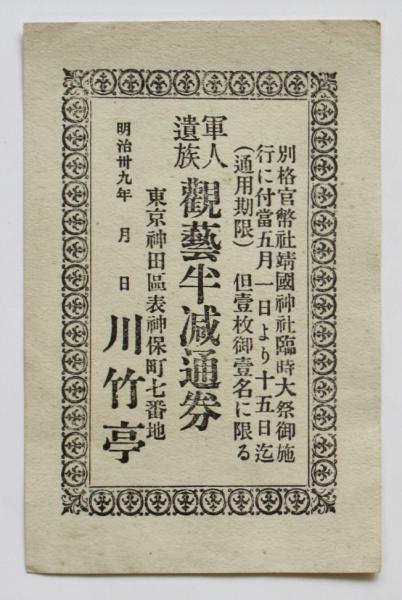 別格官幣社靖國神社臨時大祭御施
行に付當五月一日より十五日迄
(通用期限) 但壹枚御壹名に限る
軍人
遺族
觀藝半减通券
東京神田區表神保町七番地
川竹亭
明治卅九年 月 日